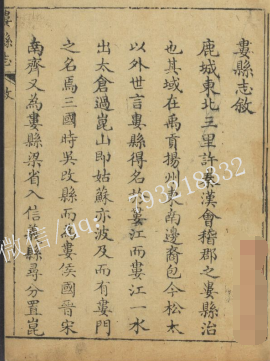 婁縣志敘
鹿城東北三里許秦漢會稽郡之婁縣治
也其域在禹貢揚州東南邊裔包今松太
以外世言婁縣得名於婁江而婁江一水
出太倉過崑山即姑蘇亦波及而有婁門
之名焉三國時吳改縣而為婁侯國晉宋
南齊又為婁縣梁省入信義縣尋分置崑
婁縣志 敘
微信/qq: 793218332